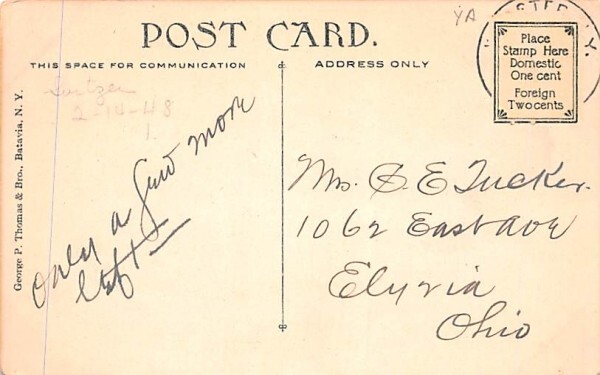 POST CARD.
THIS SPACE FOR COMMUNICATION
ADDRESS ONLY
YA
Place
Stamp Here
Domestic
One cent
Foreign
Two cents
George P. Thomas & Bro., Batavia, N. Y.
2-14-48
1
only a few more
left
Mrs. E Tucker.
1062 East ave
Elyria
Ohio